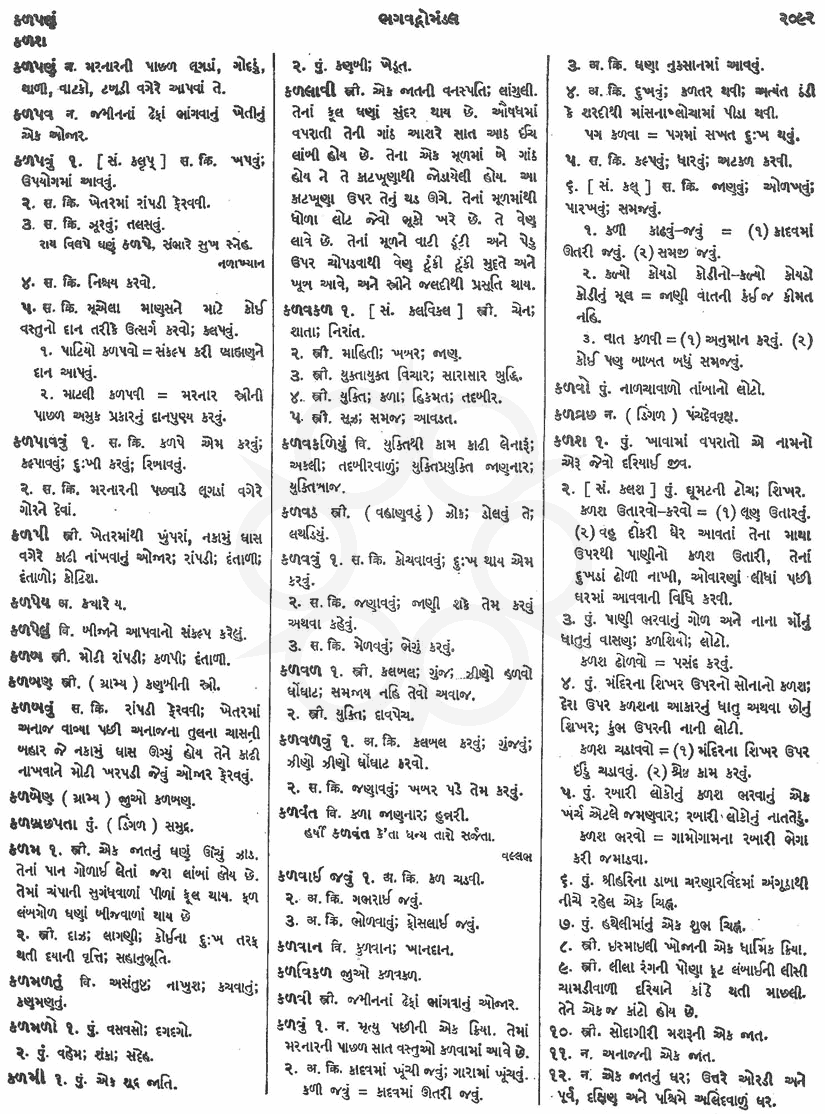 કળપણું
ભગવદ્ગોમંડલ
૨૦૯૨
કળશ
કળપણું ન. મરનારની પાછળ લૂગડાં, ગોદડું,
થાળી, વાટકો, ટબૂડી વગેરે આપવાં તે.
કળપવ ન. જમીનનાં ઢેફાં ભાંગવાનું ખેતીનું
એક ઓજાર.
કળપવું ૧. [ સં. કલૃપ્ ] સ. ક્રિ. ખપવું;
ઉપયોગમાં આવવું.
૨. સ. ક્રિ. ખેતરમાં રાંપડી ફેરવવી.
૩. સ. ક્રિ. ઝૂરવું; તલસવું.
રાય વિલપે ઘણું કળપે, સંભારે સુખ સ્નેહ.
નળાખ્યાન
૪. સ. ક્રિ. નિશ્ચય કરવો.
૫. સ. ક્રિ. મૂએલા માણસને માટે કોઈ
વસ્તુનો દાન તરીકે ઉત્સર્ગ કરવો; કલપવું.
૧. પાટિયો કળપવો = સંકલ્પ કરી બ્રાહ્મણને
દાન આપવું.
૨. માટલી કળપવી = મરનાર સ્ત્રીની
પાછળ અમુક પ્રકારનું દાનપુણ્ય કરવું.
કળપાવવું ૧. સ. ક્રિ. કળપે એમ કરવું;
કલ્પાવવું; દુઃખી કરવું; રિબાવવું.
૨. સ. ક્રિ. મરનારની પછવાડે લૂગડાં વગેરે
ગોરને દેવાં.
કળપી સ્ત્રી. ખેતરમાંથી ખુંપરાં, નકામું ઘાસ
વગેરે કાઢી નાંખવાનું ઓજાર; રાંપડી; દંતાળી;
દંતાળો; કોટિશ.
કળપેય અ. ક્યારે ય.
કળપેલું વિ. બીજાને આપવાનો સંકલ્પ કરેલું.
કળબ સ્ત્રી. મોટી રાંપડી; કળપી; દંતાળી.
કળબણ સ્ત્રી. ( ગ્રામ્ય ) કણબીની સ્ત્રી.
કળબવું સ. ક્રિ. રાંપડી ફેરવવી; ખેતરમાં
અનાજ વાવ્યા પછી અનાજના તુલના ચાસની
બહાર જે નકામું ઘાસ ઊગ્યું હોય તેને કાઢી
નાખવાને મોટી ખરપડી જેવું ઓજાર ફેરવવું.
કળબેણ ( ગ્રામ્ય ) જુઓ કળબણ.
કળબ્રછપતા પું. ( ડિંગળ ) સમુદ્ર.
કળમ ૧. સ્ત્રી. એક જાતનું ઘણું ઊંચું ઝાડ.
તેનાં પાન ગોળાઈ લેતાં જરા લાંબાં હોય છે.
તેમાં ચંપાની સુગંધવાળાં પીળાં ફૂલ થાય. ફળ
લંબગોળ ઘણાં બીજવાળાં થાય છે
૨. સ્ત્રી. દાઝ; લાગણી; કોઈના દુઃખ તરફ
થતી દયાની વૃત્તિ; સહાનુભૂતિ.
કળમળતું વિ. અસંતુષ્ટ; નાખુશ; કચવાતું;
કણમણતું.
કળમળો ૧. પું. વસવસો; દગદગો.
૨. પું. વહેમ; શંકા; સંદેહ.
કળમી ૧. પું. એક શૂદ્ર જાતિ.
૨. પું. કણબી; ખેડૂત.
કળલાવી સ્ત્રી. એક જાતની વનસ્પતિ; લાંગુલી.
તેનાં ફૂલ ઘણાં સુંદર થાય છે. ઔષધમાં
વપરાતી તેની ગાંઠ આશરે સાત આઠ ઈંચ
લાંબી હોય છે. તેના એક મૂળમાં બે ગાંઠ
હોય ને તે કાટખૂણાથી જોડાયેલી હોય. આ
કાટખૂણા ઉપર તેનું થડ ઊગે. તેનાં મૂળમાંથી
ધોળા લોટ જેવો ભૂકો ખરે છે. તે વેણ
લાવે છે. તેનાં મૂળને વાટી ડૂંટી અને પેઢુ
ઉપર ચોપડવાથી વેણ ટૂંકી ટૂંકી મુદતે અને
ખૂબ આવે, અને સ્ત્રીને જલદીથી પ્રસૂતિ થાય.
કળવકળ ૧. [ સં. કલવિકલ ] સ્ત્રી. ચેન;
શાતા; નિરાંત.
૨. સ્ત્રી. માહિતી; ખબર; જાણ.
૩. સ્ત્રી. યુક્તાયુક્ત વિચાર; સારાસાર બુદ્ધિ.
૪. સ્ત્રી. યુક્તિ; કળા; હિકમત; તદબીર.
૫. સ્ત્રી. સૂઝ; સમજ; આવડત.
કળવકળિયું વિ. યુક્તિથી કામ કાઢી લેનારું;
અકલી; તદબીરવાળું; યુક્તિપ્રયુક્તિ જાણનાર;
યુક્તિબાજ.
કળવડ સ્ત્રી. ( વહાણવટું ) ઝોક; ડોલવું તે;
લથડિયું.
કળવવું ૧. સ. ક્રિ. કોચવાવવું; દુઃખ થાય એમ
કરવું.
૨. સ. ક્રિ. જણાવવું; જાણી શકે તેમ કરવું
અથવા કહેવું.
૩. સ. ક્રિ. મેળવવું; ભેગું કરવું.
કળવળ ૧. સ્ત્રી. કલબલ; ગુંજ; ઝીણો હળવો
ઘોંઘાટ; સમજાય નહિ તેવો અવાજ.
૨. સ્ત્રી. યુક્તિ; દાવપેચ.
કળવળવું ૧. અ. ક્રિ. કલબલ કરવું; ગુંજવું;
ઝીણો ઝીણો ઘોંઘાટ કરવો.
૨. સ. ક્રિ. જણાવવું; ખબર પડે તેમ કરવું.
કળવંત વિ. કળા જાણનાર; હુન્નરી.
હર્ષી કળવંત કે'તા ધન્ય તારો સર્જતા.
વલ્લભ
કળવાઈ જવું ૧. અ. ક્રિ. કળ ચડવી.
૨. અ. ક્રિ. ગભરાઈ જવું.
૩. અ. ક્રિ. ભોળવાવું; ફોસલાઈ જવું.
કળવાન વિ. કુળવાન; ખાનદાન.
કળવિકળ જુઓ કળવકળ.
કળવી સ્ત્રી. જમીનનાં ઢેફાં ભાંગવાનું ઓજાર.
કળવું ૧. ન. મૃત્યુ પછીની એક ક્રિયા. તેમાં
મરનારની પાછળ સાત વસ્તુઓ કળવામાં આવે છે.
૨. અ. ક્રિ. કાદવમાં ખૂંચી જવું; ગારામાં ખૂંચવું.
કળી જવું = કાદવમાં ઊતરી જવું.
૩. અ. ક્રિ. ઘણા નુકસાનમાં આવવું.
૪. અ. ક્રિ. દુખવું; કળતર થવી; અત્યંત ઠંડી
કે શરદીથી માંસના લોચામાં પીડા થવી.
પગ કળવા = પગમાં સખત દુઃખ થવું.
૫. સ. ક્રિ. કલ્પવું; ધારવું; અટકળ કરવી.
૬. [ સં. કલ્ ] સ. ક્રિ. જાણવું; ઓળખવું;
પારખવું; સમજવું.
૧. કળી કાઢવું-જવું = (૧) કાદવમાં
ઊતરી જવું. (૨) સમજી જવું.
૨. કળ્યો કોયડો કોડીનો-કળ્યો કોયડો
કોડીનું મૂલ = જાણી વાતની કંઈ જ કીમત
નહિ.
૩. વાત કળવી = (૧) અનુમાન કરવું. (૨)
કોઈ પણ બાબત બધું સમજવું.
કળવો પું. નાળચાવાળો તાંબાનો લોટો.
કળવ્રછ ન. ( ડિંગળ ) પંચદેવવૃક્ષ.
કળશ ૧. પું. ખાવામાં વપરાતો એ નામનો
એરૂ જેવો દરિયાઈ જીવ.
૨. [ સં. કલશ ] પું. ઘૂમટની ટોચ; શિખર.
કળશ ઉતારવો-કરવો = (૧) લૂણ ઉતારવું.
(૨) વહુ દીકરી ઘેર આવતાં તેના માથા
ઉપરથી પાણીનો કળશ ઉતારી, તેનાં
દુખડાં ઢોળી નાખી, ઓવારણાં લીધાં પછી
ઘરમાં આવવાની વિધિ કરવી.
૩. પું. પાણી ભરવાનું ગોળ અને નાના મોંનું
ધાતુનું વાસણ; કળશિયો; લોટો.
કળશ ઢોળવો = પસંદ કરવું.
૪. પું. મંદિરના શિખર ઉપરનો સોનાનો કળશ;
દેરા ઉપર કળશના આકારનું ધાતુ અથવા છોનું
શિખર; કુંભ ઉપરની નાની લોટી.
કળશ ચડાવવો = (૧) મંદિરના શિખર ઉપર
ઈંડું ચડાવવું. (૨) શ્રેષ્ઠ કામ કરવું.
૫. પું. રબારી લોકોનું કળશ ભરવાનું એક
ખર્ચ એટલે જમણવાર; રબારી લોકોનું નાતતેડું.
કળશ ભરવો = ગામોગામના રબારી ભેગા
કરી જમાડવા.
૬. પું. શ્રીહરિના ડાબા ચરણારવિંદમાં અંગૂઠાથી
નીચે રહેલ એક ચિહ્ન.
૭. પું. હથેલીમાંનું એક શુભ ચિહ્ન.
૮. સ્ત્રી. ઇસ્માઇલી ખોજાની એક ધાર્મિક ક્રિયા.
૯. સ્ત્રી. લીલા રંગની પોણા ફૂટ લંબાઈની લીસી
ચામડીવાળી દરિયાને કાંઠે થતી માછલી.
તેને એક જ કાંટો હોય છે.
૧૦. સ્ત્રી. સોદાગીરી મશરૂની એક જાત.
૧૧. ન. અનાજની એક જાત.
૧૨. ન. એક જાતનું ઘર; ઉત્તરે ઓરડી અને
પૂર્વ, દક્ષિણ અને પશ્ચિમે અલિંદવાળું ઘર.